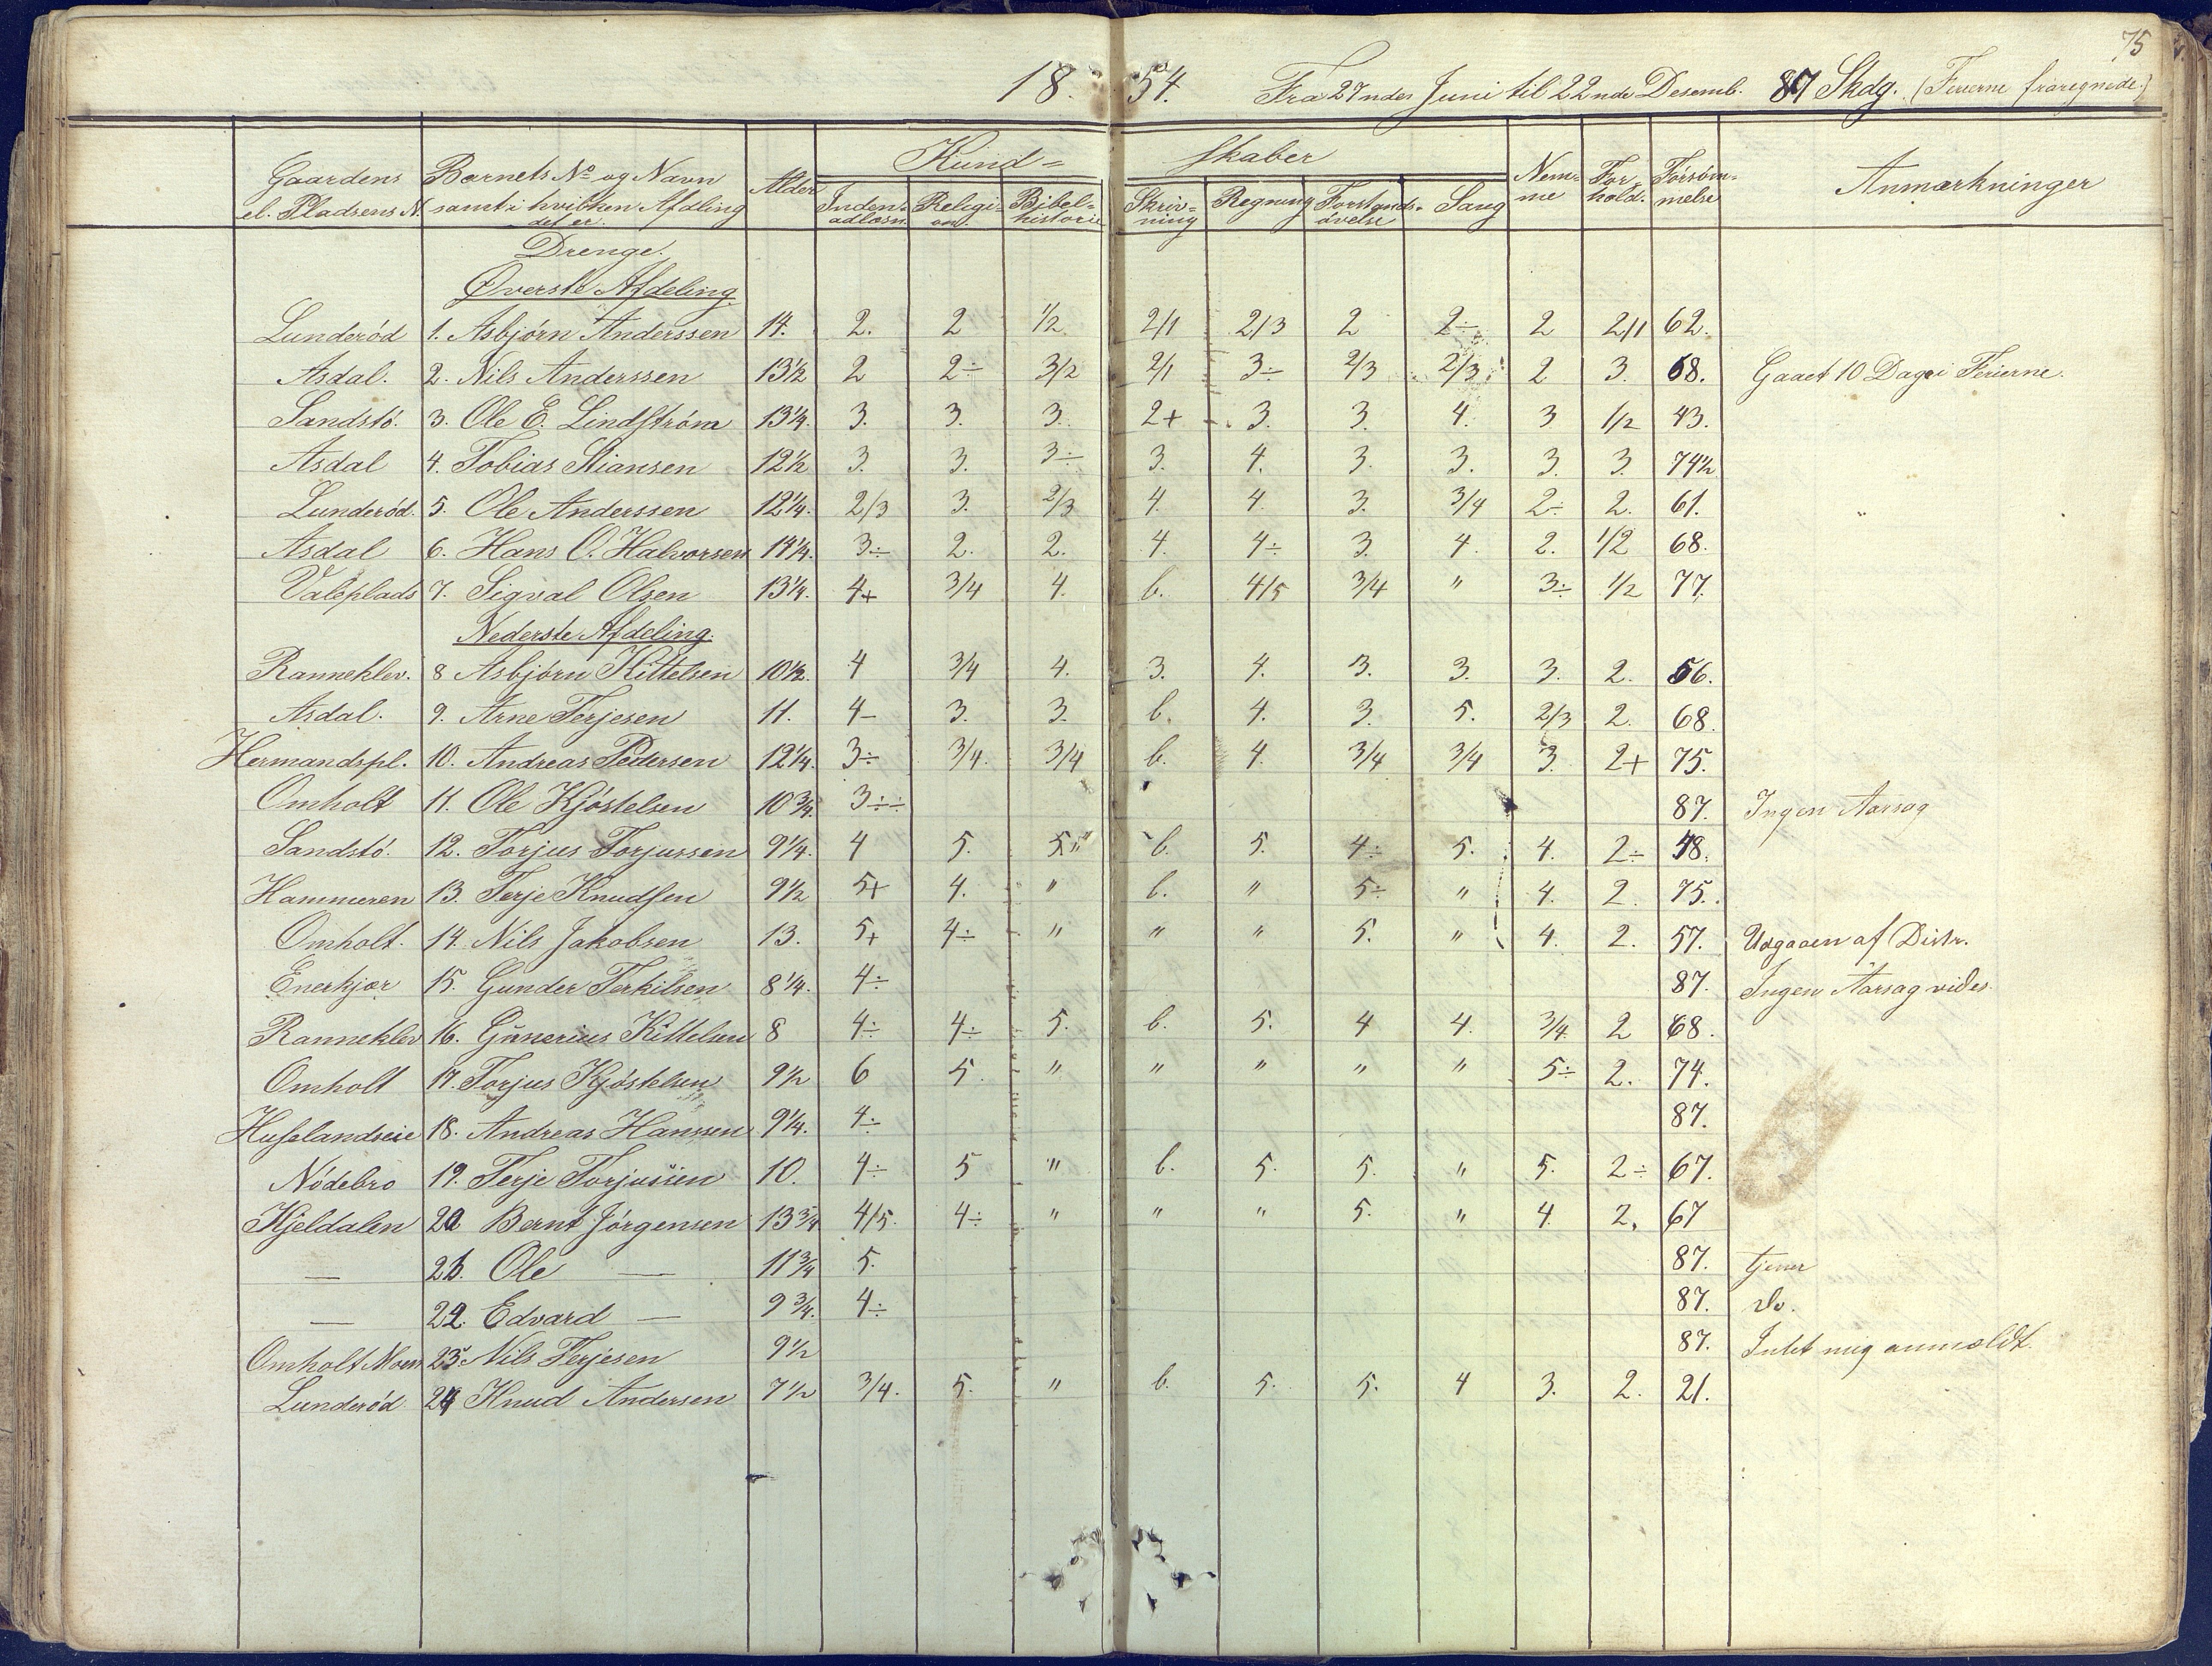 75
18 54. Fra 27nde Juni til 22nde Desemb. 87 Skdg. (Ferierne fraregnede.)
Gaardens el. Pladsens N. Barnets No og Navn samt i hvilken Afdeling det er. Alder Kund= skaber Nem=me For hold. Forsøm=melse Anmærkninger
Inden=adlæsn. Religi=on. Bibel=historie Skriv=ning Regning Forstands=øvelse Sang
Drenge.
Øverste Afdeling
Lunderød 1. Asbjørn Anderssen 14. 2. 2 1/2 2/1 2/3 2 2÷ 2 2/1 62.
Asdal. 2. Nils Anderssen 13½ 2 2÷ 3/2 2/1 3÷ 2/3 2/3 2 3. 68. Gaaet 10 Dage i Ferierne.
Sandstø. 3. Ole E. Lindstrøm 13¼. 3. 3. 3. 2+ 3. 3. 4. 3 1/2 43.
Asdal 4. Tobias Stiansen 12½ 3. 3. 3÷ 3. 4. 3. 3. 3. 3. 74½
Lunderød. 5. Ole Anderssen 12¼. 2/3 3. 2/3 4. 4. 3. 3/4 2÷ 2. 61.
Asdal 6. Hans O. Halvorsen 14¼. 3÷ 2. 2. 4. 4÷ 3. 4. 2. 1/2 68.
Valeplads 7. Sigval Olsen 13¼. 4+ 3/4 4. b. 4/5 3/4 " 3÷ 1/2 77.
Nederste Afdeling.
Ranneklev. 8 Asbjørn Kittelsen 10½. 4 3/4 4. 3. 4. 3. 3. 3. 2. 56.
Asdal. 9. Arne Terjesen 11. 4- 3. 3. b. 4. 3. 5. 2/3 2. 68.
Hermandspl. 10. Andreas Pedersen 12¼. 3÷ 3/4. 3/4 b. 4. 3/4 3/4 3. 2+ 75.
Omholt 11. Ole Kjøstelsen 10¾. 3÷÷ 87. Ingen Aarsag
Sandstø. 12. Torjus Torjussen 9¼. 4 5. 5. b. 5. 4÷ 5. 4. 2÷ 48.
Hammeren 13. Terje Knudsen 9½ 5+ 4. " b. " 5÷ " 4. 2. 75.
Omholt. 14. Nils Jakobsen 13. 5+ 4÷ " " " 5. " 4. 2. 57. Udgaaen af Distr.
Enerkjær 15. Gunder Terkilsen 8¼. 4÷ 87. Ingen Aarsag vides.
Ranneklev 16. Gunerius Kittelsen 8 4÷ 4÷ 5. b. 5. 4 4. 3/4. 2 68.
Omholt 17. Torjus Kjøstelsen 9½ 6 5. " " " " " 5÷ 2. 74.
Husslandseie 18. Andreas Hanssen 9¼. 4÷ 87.
Nødebro 19. Terje Torjussen 10. 4÷ 5 " b. 5. 5. " 5. 2÷ 67.
Kjeldalen 20 Bernt Jørgensen 13¾ 4/5. 4÷ " " " 5. " 4. 2. 67
— 21. Ole — 11¾ 5. 87. tjener
— 22. Edvard — 9¾. 4÷ 87. do.
Omholt Moen 23. Nils Terjesen 9½ 87. Intet mig anmeldt.
Lunderød 24 Knud Andersen 7½ 3/4. 5. " b. 5. 5. 4 3. 2. 21.